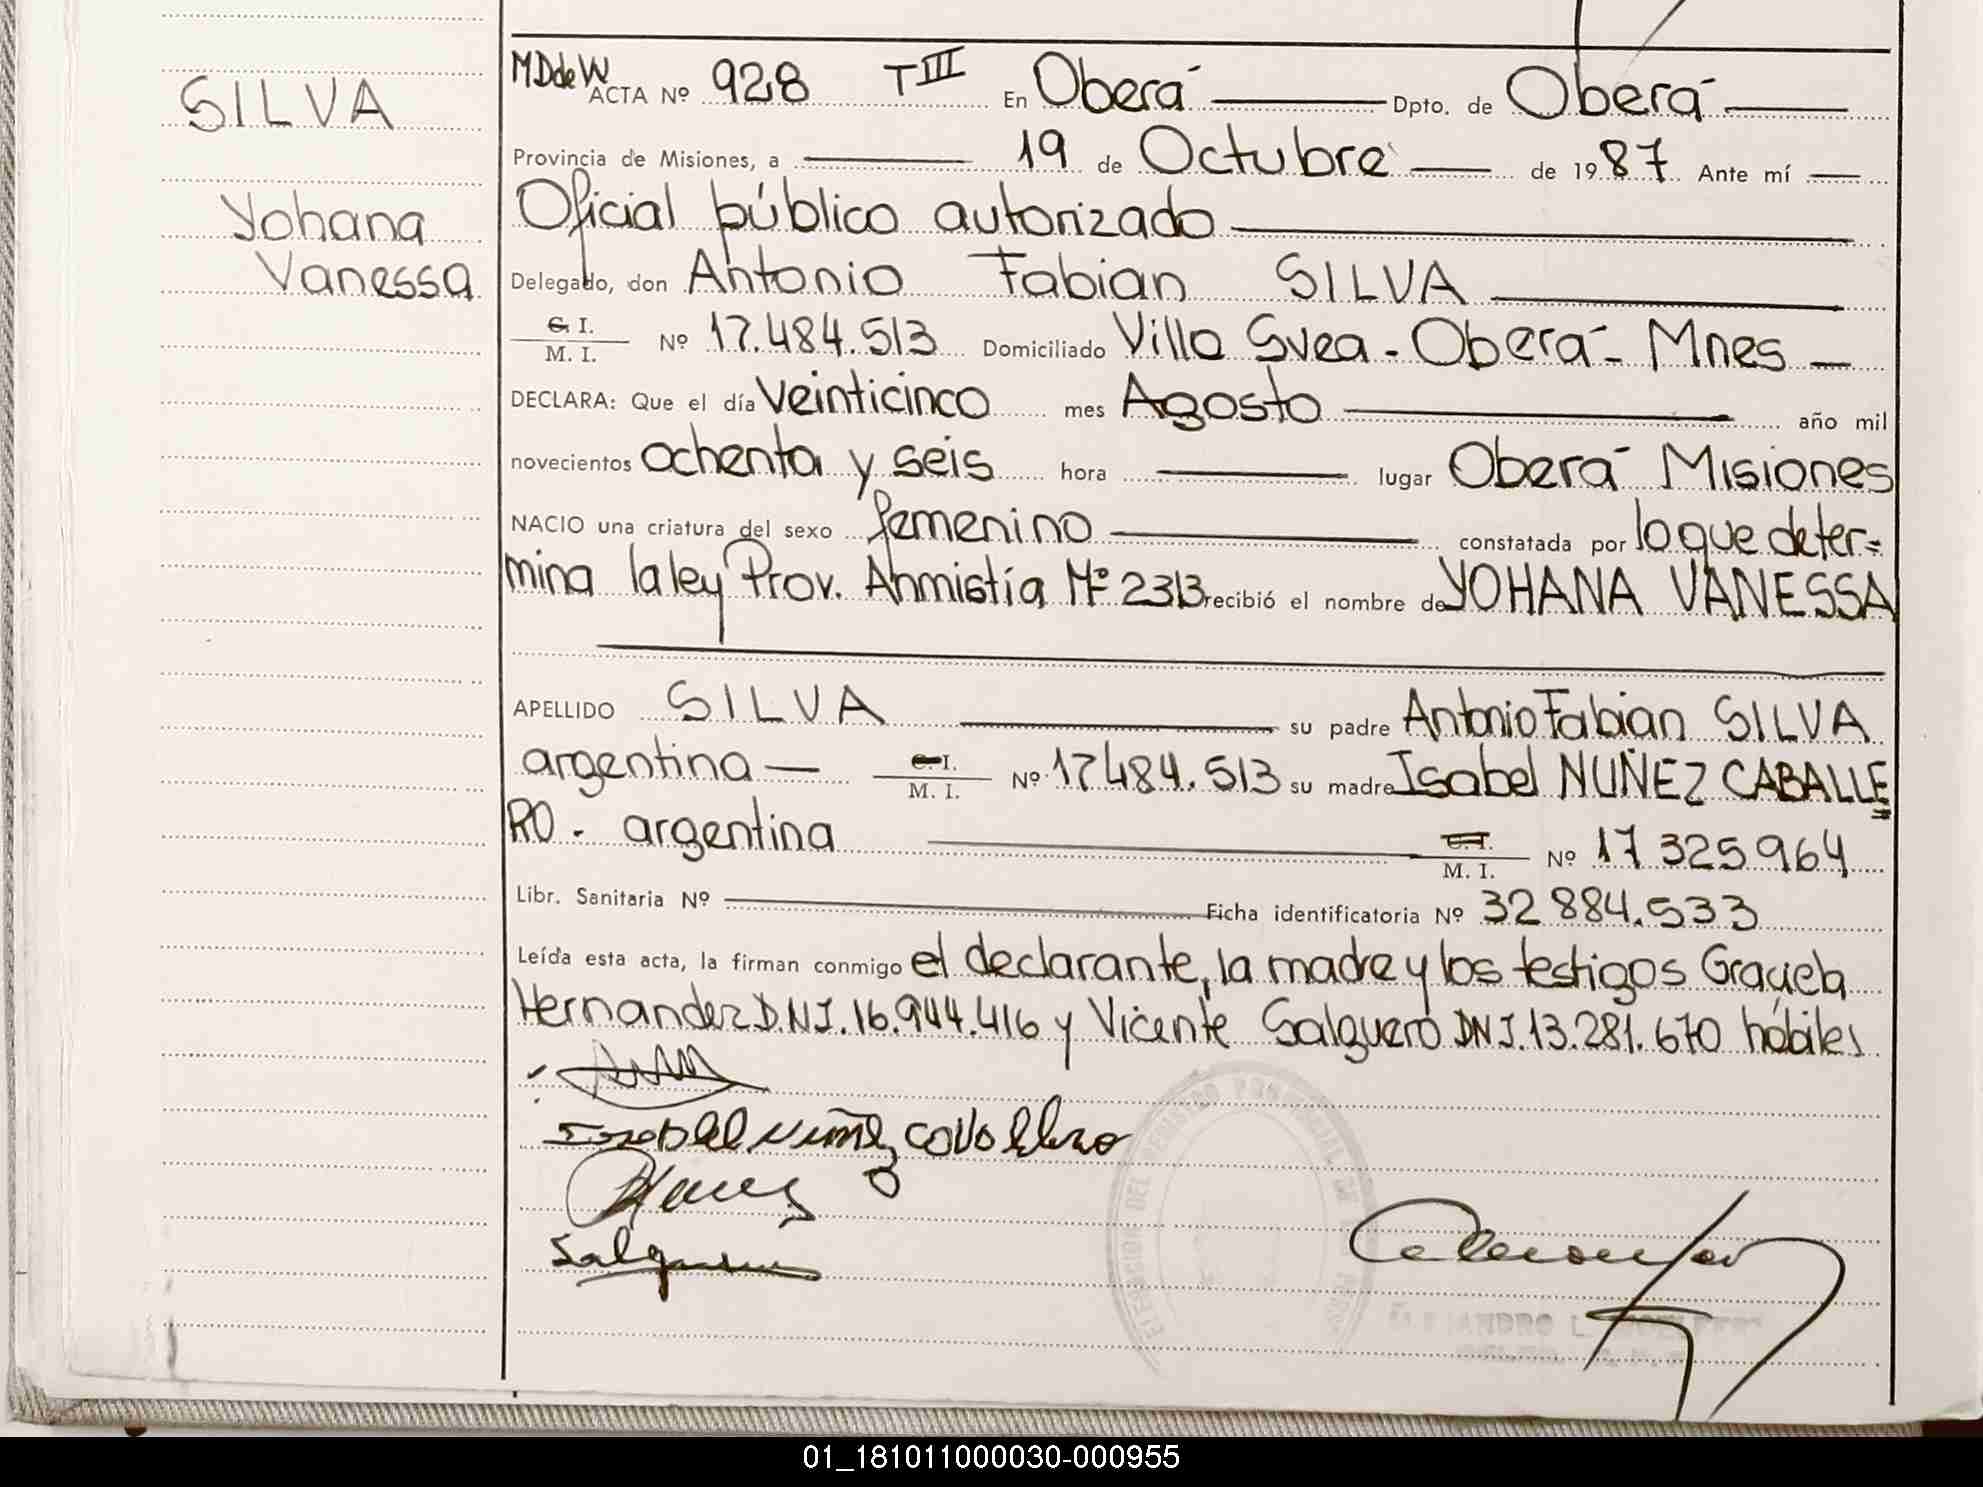 SILVA
Yohana
Vanessa
MDdeW ACTA Nº 928 TIII En Oberá Dpto. de Oberá
Provincia de Misiones, a 19 de Octubre de 1987 Ante mí
Oficial público autorizado
Delegado, don Antonio Fabian SILVA
C.I. M. I. Nº 17.484.513 Domiciliado Villa Svea - Oberá - Mnes
DECLARA: Que el día veinticinco mes Agosto año mil
novecientos ochenta y seis hora lugar Oberá Misiones
NACIO una criatura del sexo femenino constatada por lo que deter=
mina la ley Prov. Anmistía Nº 2313 recibió el nombre de YOHANA VANESSA
APELLIDO SILVA su padre Antonio Fabian SILVA
argentina C.I. M. I. Nº 17484.513 su madre Isabel NUÑEZ CABALLE
RO - argentina C.I. M. I. Nº 17325964
Libr. Sanitaria Nº Ficha identificatoria Nº 32884.533
Leída esta acta, la firman conmigo el declarante, la madre y los testigos Graciela
Hernandez D.N.I. 16.944.416 y Vicente Salguero DNI. 13.281.670 hábiles
Isabel Nuñez Caballero
Salguero
01_181011000030-000955